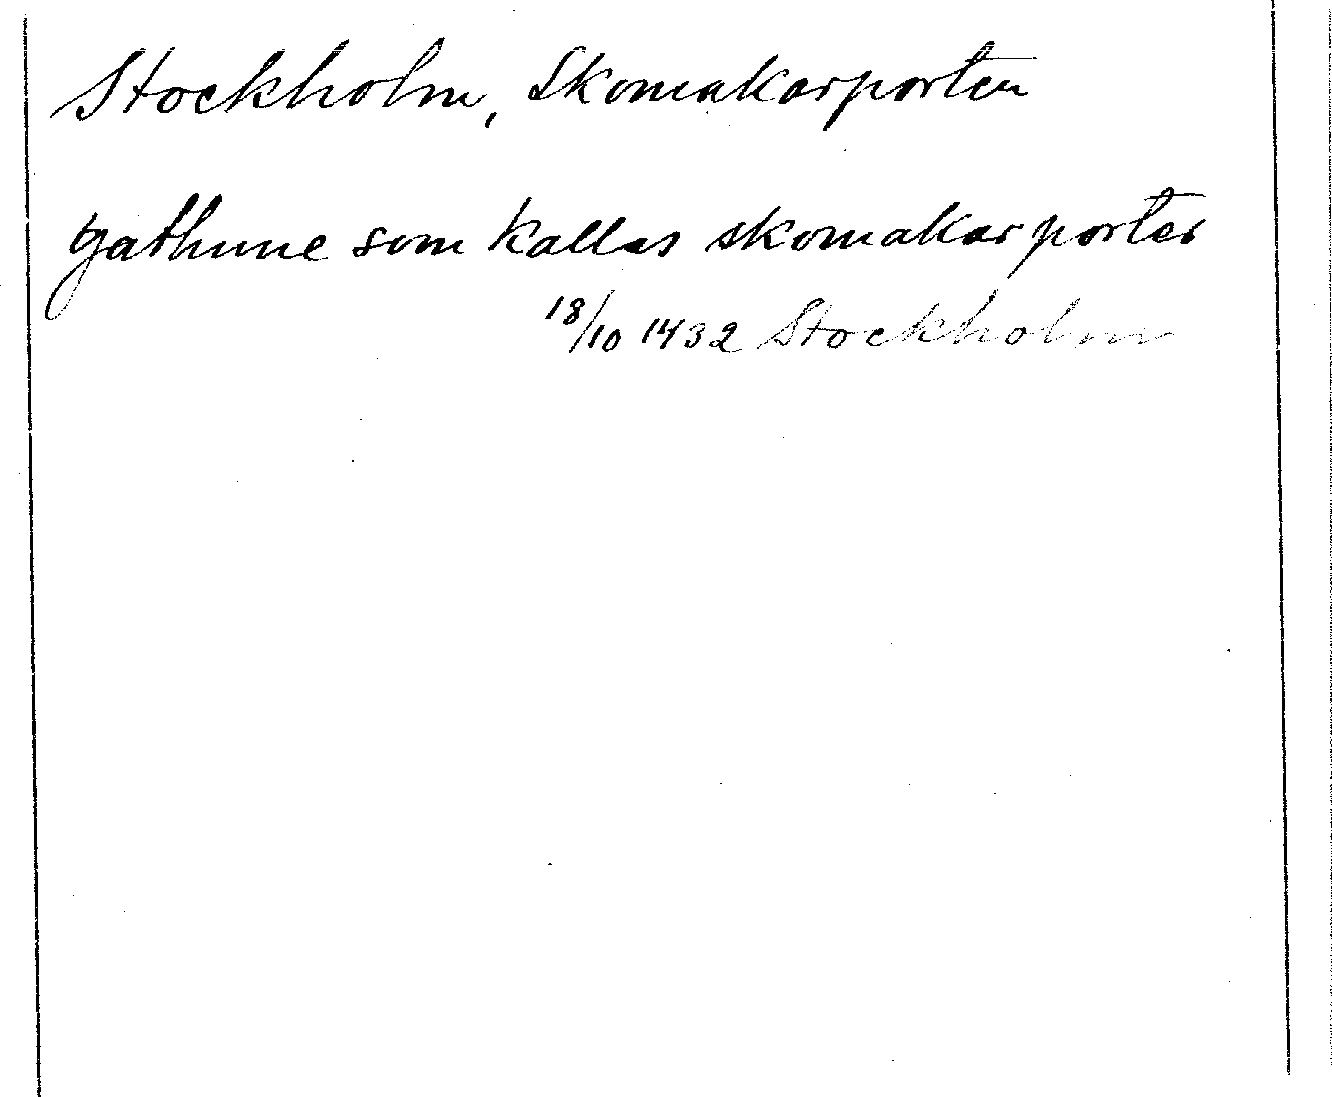 Stockholm, Skomakarporten
gathune som kallas skomakar porter
18/10 1432 Stockholm